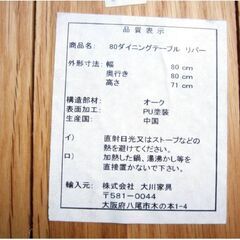 品質表示
商品名: 80ダイニングテーブル リバー
外形寸法: 幅 80 cm
奥行き 80 cm
高さ 71 cm
構造部材: オーク
表面加工: PU塗装
生産国: 中国
イ) 直射日光又はストーブなどの
熱を避けてください。
ロ) 加熱した鍋、湯沸かし等を
直接置かないで下さい。
輸入元: 株式会社 大川家具
〒581-0044
大阪府八尾市木の本1-4